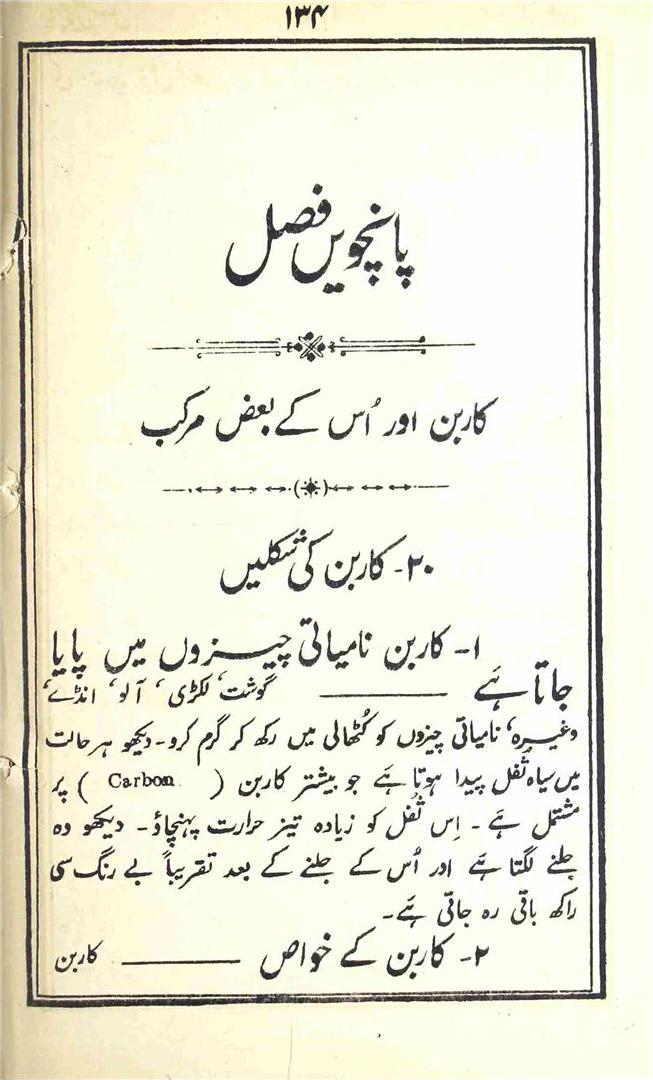 ۱۳۴
پانچویں فصل
کاربن اور اُس کے بعض مرکب
۲۰- کاربن کی شکلیں
۱- کاربن نامیاتی چیزوں میں پایا
جاتا ہے ——— گوشت، لکڑی، آلو، انڈے،
وغیرہ، نامیاتی چیزوں کو کُٹھالی میں رکھ کر گرم کرو۔ دیکھو ہر حالت
میں سیاہ ثُفل پیدا ہوتا ہے جو بیشتر کاربن ( Carbon ) پر
مشتمل ہے۔ اِس ثُفل کو زیادہ تیز حرارت پہنچاؤ۔ دیکھو وہ
جلنے لگتا ہے اور اُس کے جلنے کے بعد تقریباً بے رنگ سی
راکھ باقی رہ جاتی ہے۔
۲- کاربن کے خواص ——— کاربن